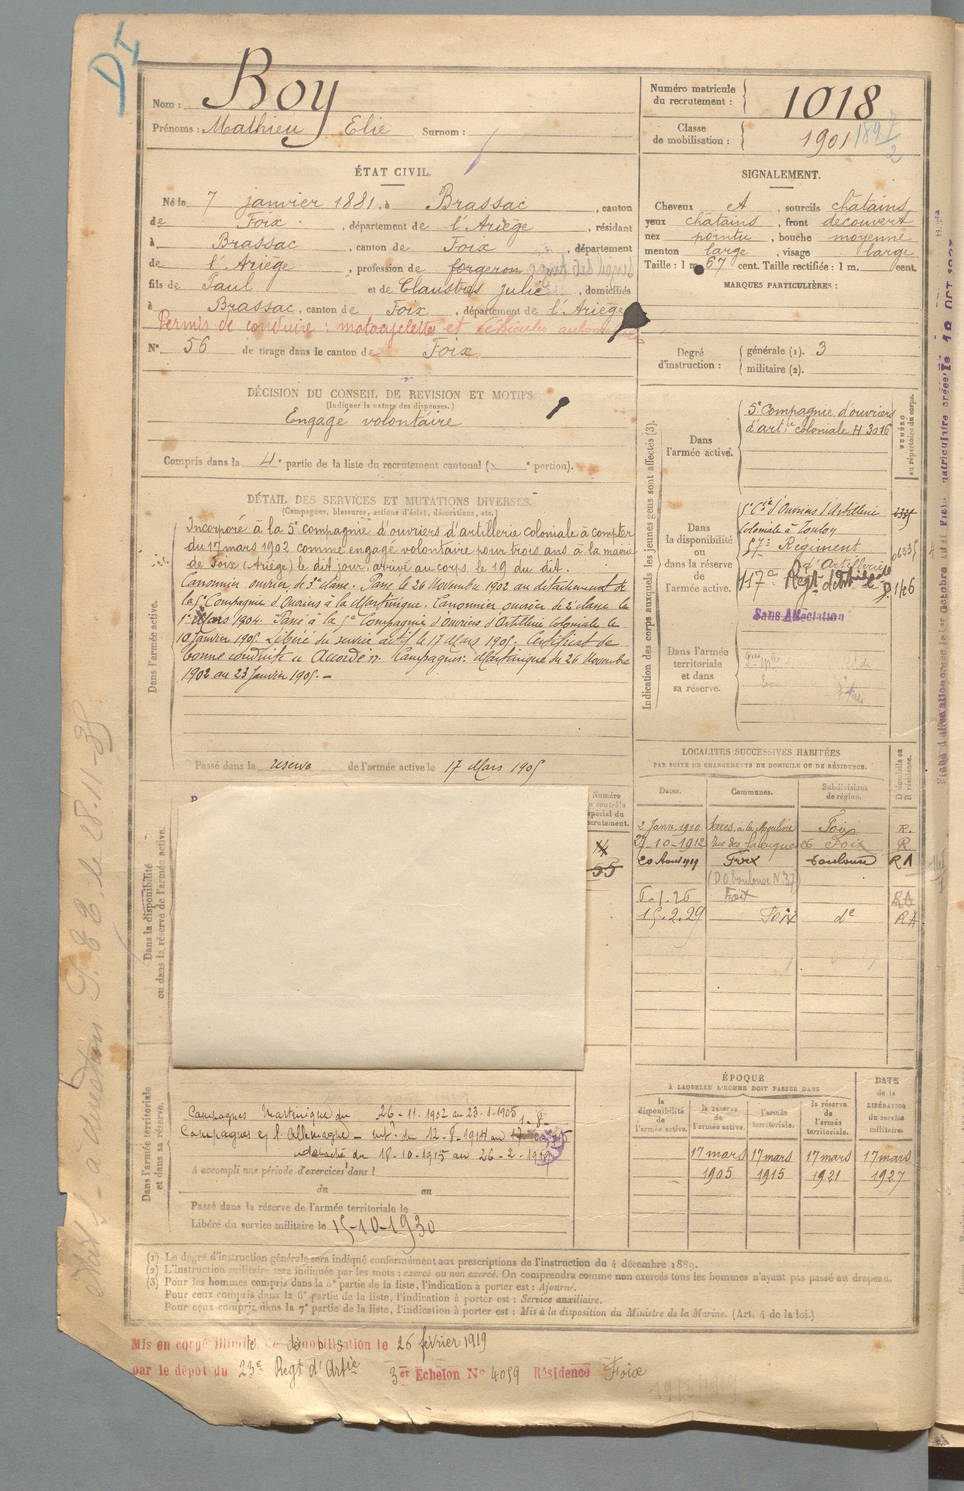 DI
Nom : Roy
Prénoms : Mathieu Elie Surnom :
Numéro matricule du recrutement : 1018
Classe de mobilisation : 1901 1897/2
ÉTAT CIVIL.
Né le 7 janvier 1881, à Brassac, canton
de Foix, département de l'Ariège, résidant
à Brassac, canton de Foix, département
de l'Ariège, profession de forgeron
fils de Paul et de Claustras Julie, domiciliés
à Brassac, canton de Foix, département de l'Ariège
Permis de conduire : motocyclettes et véhicules automobiles
N° 56 de tirage dans le canton de Foix
SIGNALEMENT.
Cheveux A, sourcils châtains
yeux châtains, front découvert
nez pointu, bouche moyenne
menton large, visage large
Taille : 1 m. 67 cent. Taille rectifiée : 1 m. cent.
MARQUES PARTICULIÈRES :
Degré d'instruction : générale (1). 3
militaire (2).
DÉCISION DU CONSEIL DE REVISION ET MOTIFS.
(Indiquer la nature des dispenses.)
Engagé volontaire
Compris dans la 4e partie de la liste du recrutement cantonal ( e portion).
DÉTAIL DES SERVICES ET MUTATIONS DIVERSES.
(Campagnes, blessures, actions d'éclat, décorations, etc.)
Dans l'armée active.
Incorporé à la 5e compagnie d'ouvriers d'artillerie coloniale à compter
du 17 mars 1902 comme engagé volontaire pour trois ans à la mairie
de Foix (Ariège) le dit jour, arrivé au corps le 19 du dit.
Canonnier ouvrier de 3e classe. Passé le 26 Novembre 1902 au détachement de
la 5e Compagnie d'Ouvriers à la Martinique. Canonnier ouvrier de 2e classe le
1er Mars 1904. Passé à la 5e Compagnie d'Ouvriers d'Artillerie coloniale le
10 Janvier 1905. Libéré du service actif le 17 Mars 1905. Certificat de
bonne conduite "Accordé". Campagnes : Martinique du 26 Novembre
1902 au 23 Janvier 1905.
Passé dans la réserve de l'armée active le 17 Mars 1905
Indication des corps auxquels les jeunes gens sont affectés (3).
Dans l'armée active.
5e Compagnie d'ouvriers
d'artie coloniale H 3016
NUMÉRO au répertoire du corps.
Dans la disponibilité ou dans la réserve de l'armée active.
5e Cie d'Ouvriers d'Artillerie
Coloniale à Toulon
57e Régiment
d'Artillerie
117e Regt d'Artillerie
Sans Affectation
Dans l'armée territoriale et dans sa réserve.
LOCALITÉS SUCCESSIVES HABITÉES
PAR SUITE DE CHANGEMENTS DE DOMICILE OU DE RÉSIDENCE.
Dates. Communes. Subdivisions de région. D domicile ou R résidence.
2 Janv. 1910 Foix R.
27-10-1912 Foix R
20 Août 1919 Foix Toulouse RA
Foix RA
15.2.29 Foix de RA
Dans la disponibilité ou dans la réserve de l'armée active.
Numéro
contrôle
spécial du
recrutement.
55
Dans l'armée territoriale et dans sa réserve.
Campagnes Martinique du 26-11-1902 au 23-1-1905
Campagnes c/ l'Allemagne - intr du 12-8-1914 au
du 18-10-1915 au 26-2-1919
A accompli une période d'exercices dans l
du au
Passé dans la réserve de l'armée territoriale le
Libéré du service militaire le 15-10-1930
ÉPOQUE
À LAQUELLE L'HOMME DOIT PASSER DANS
la disponibilité de l'armée active. la réserve de l'armée active. l'armée territoriale. la réserve de l'armée territoriale. DATE de la LIBÉRATION du service militaire.
17 mars 17 mars 17 mars 17 mars
1905 1915 1921 1927
(1) Le degré d'instruction générale sera indiqué conformément aux prescriptions de l'instruction du 4 décembre 1889.
(2) L'instruction militaire sera indiquée par les mots : exercé ou non exercé. On comprendra comme non exercés tous les hommes n'ayant pas passé au drapeau.
(3) Pour les hommes compris dans la 5e partie de la liste, l'indication à porter est : Ajourné.
Pour ceux compris dans la 6e partie de la liste, l'indication à porter est : Service auxiliaire.
Pour ceux compris dans la 7e partie de la liste, l'indication à porter est : Mis à la disposition du Ministre de la Marine. (Art. 4 de la loi.)
Mis en congé illimité de démobilisation le 26 février 1919
par le dépôt du 23e Regt d'Artie 3er Echelon N° 4059 Résidence Foix